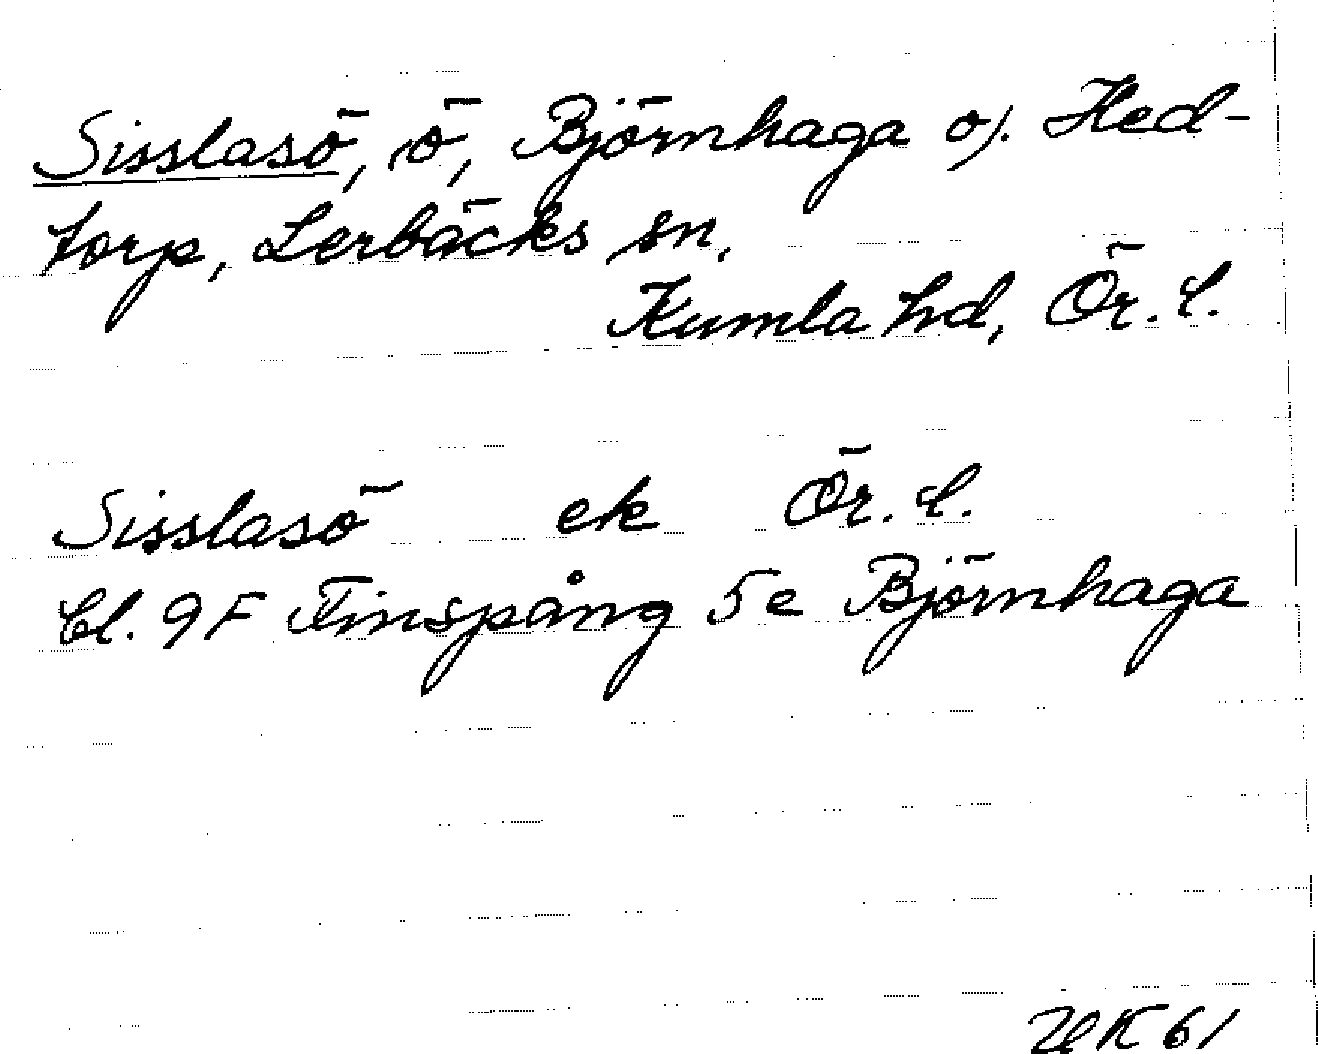 Sisslasö, ö, Björnhaga o). Hed-
torp, Lerbäcks sn,
Kumla hd, Ör. l.
Sisslasö ek Ör. l.
Bl. 9F Finspång 5e Björnhaga
UK 61